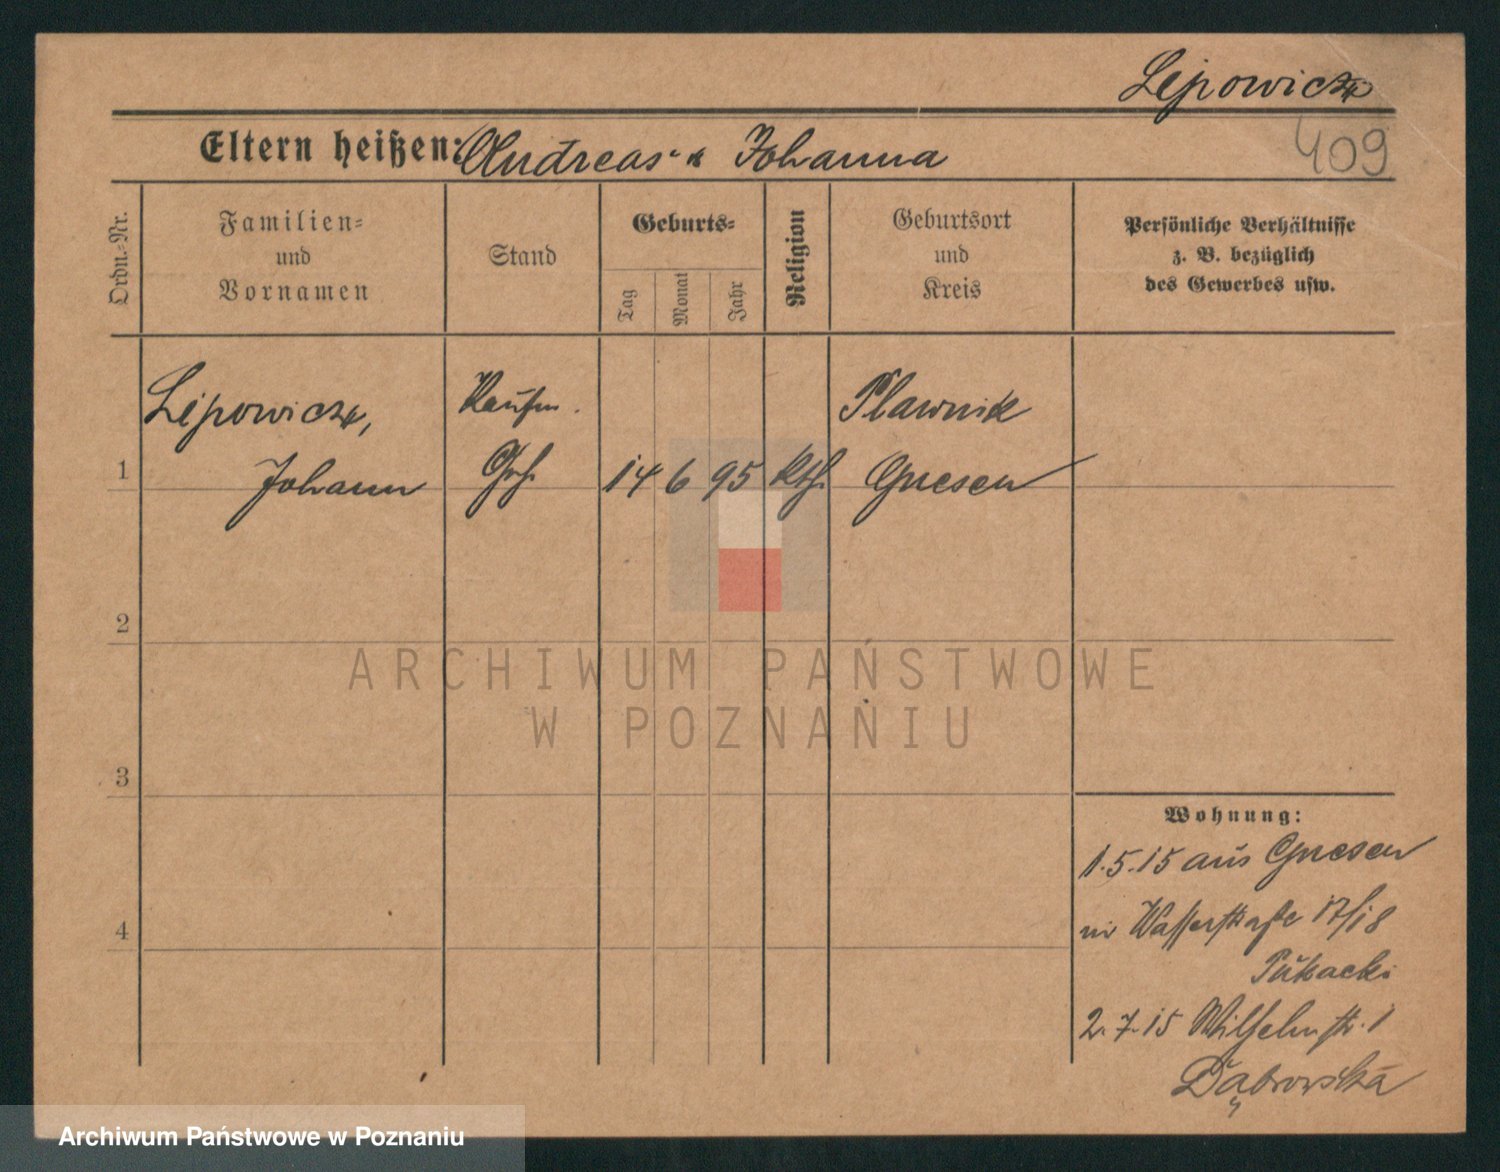 Lipowicz
409
Eltern heißen: Andreas u Johanna
Ordn.=Nr.
Familien= und Vornamen
Stand
Geburts=
Tag
Monat
Jahr
Religion
Geburtsort und Kreis
Persönliche Verhältnisse
z. B. bezüglich
des Gewerbes usw.
Lipowicz, Kaufm. Plawnik
1 Johann Geh. 14 6 95 kth. Gnesen
2
3
4
ARCHIWUM PAŃSTWOWE
W POZNANIU
Wohnung:
1.5.15 aus Gnesen
Wasserstraße 17/18
Pukacki
2.7.15 Wilhelmstr. 1
Dąbrowska
Archiwum Państwowe w Poznaniu